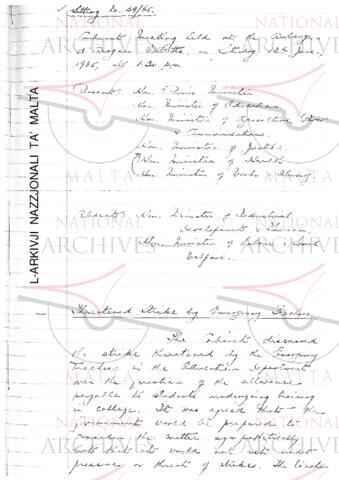 Sitting No. 29/65.
Cabinet Meeting held at the Auberge
d'Aragon, Valletta, on
1965, at 1.30 pm
Present: Hon. Prime Minister
Hon. Minister of Education
Hon. Minister of Power
& Communications.
Hon. Minister of Justice.
Hon. Minister of Health
Hon. Minister of Works & Housing.
Absent: Hon. Minister of Industrial
Development & Tourism.
Hon. Minister of Labour & Social
Welfare.
Threatened Strike by Emergency Teachers.
The Cabinet discussed
the strike threatened by the Emergency
Teachers in the Education Department
over the question of the allowance
payable to students undergoing training
in College. It was agreed that the
Government would be prepared to
consider the matter sympathetically
but that it would not act under
pressure or threat of strikes. The
L-ARKIVJI NAZZJONALI TA' MALTA
NATIONAL
ARCHIVES
MALTA